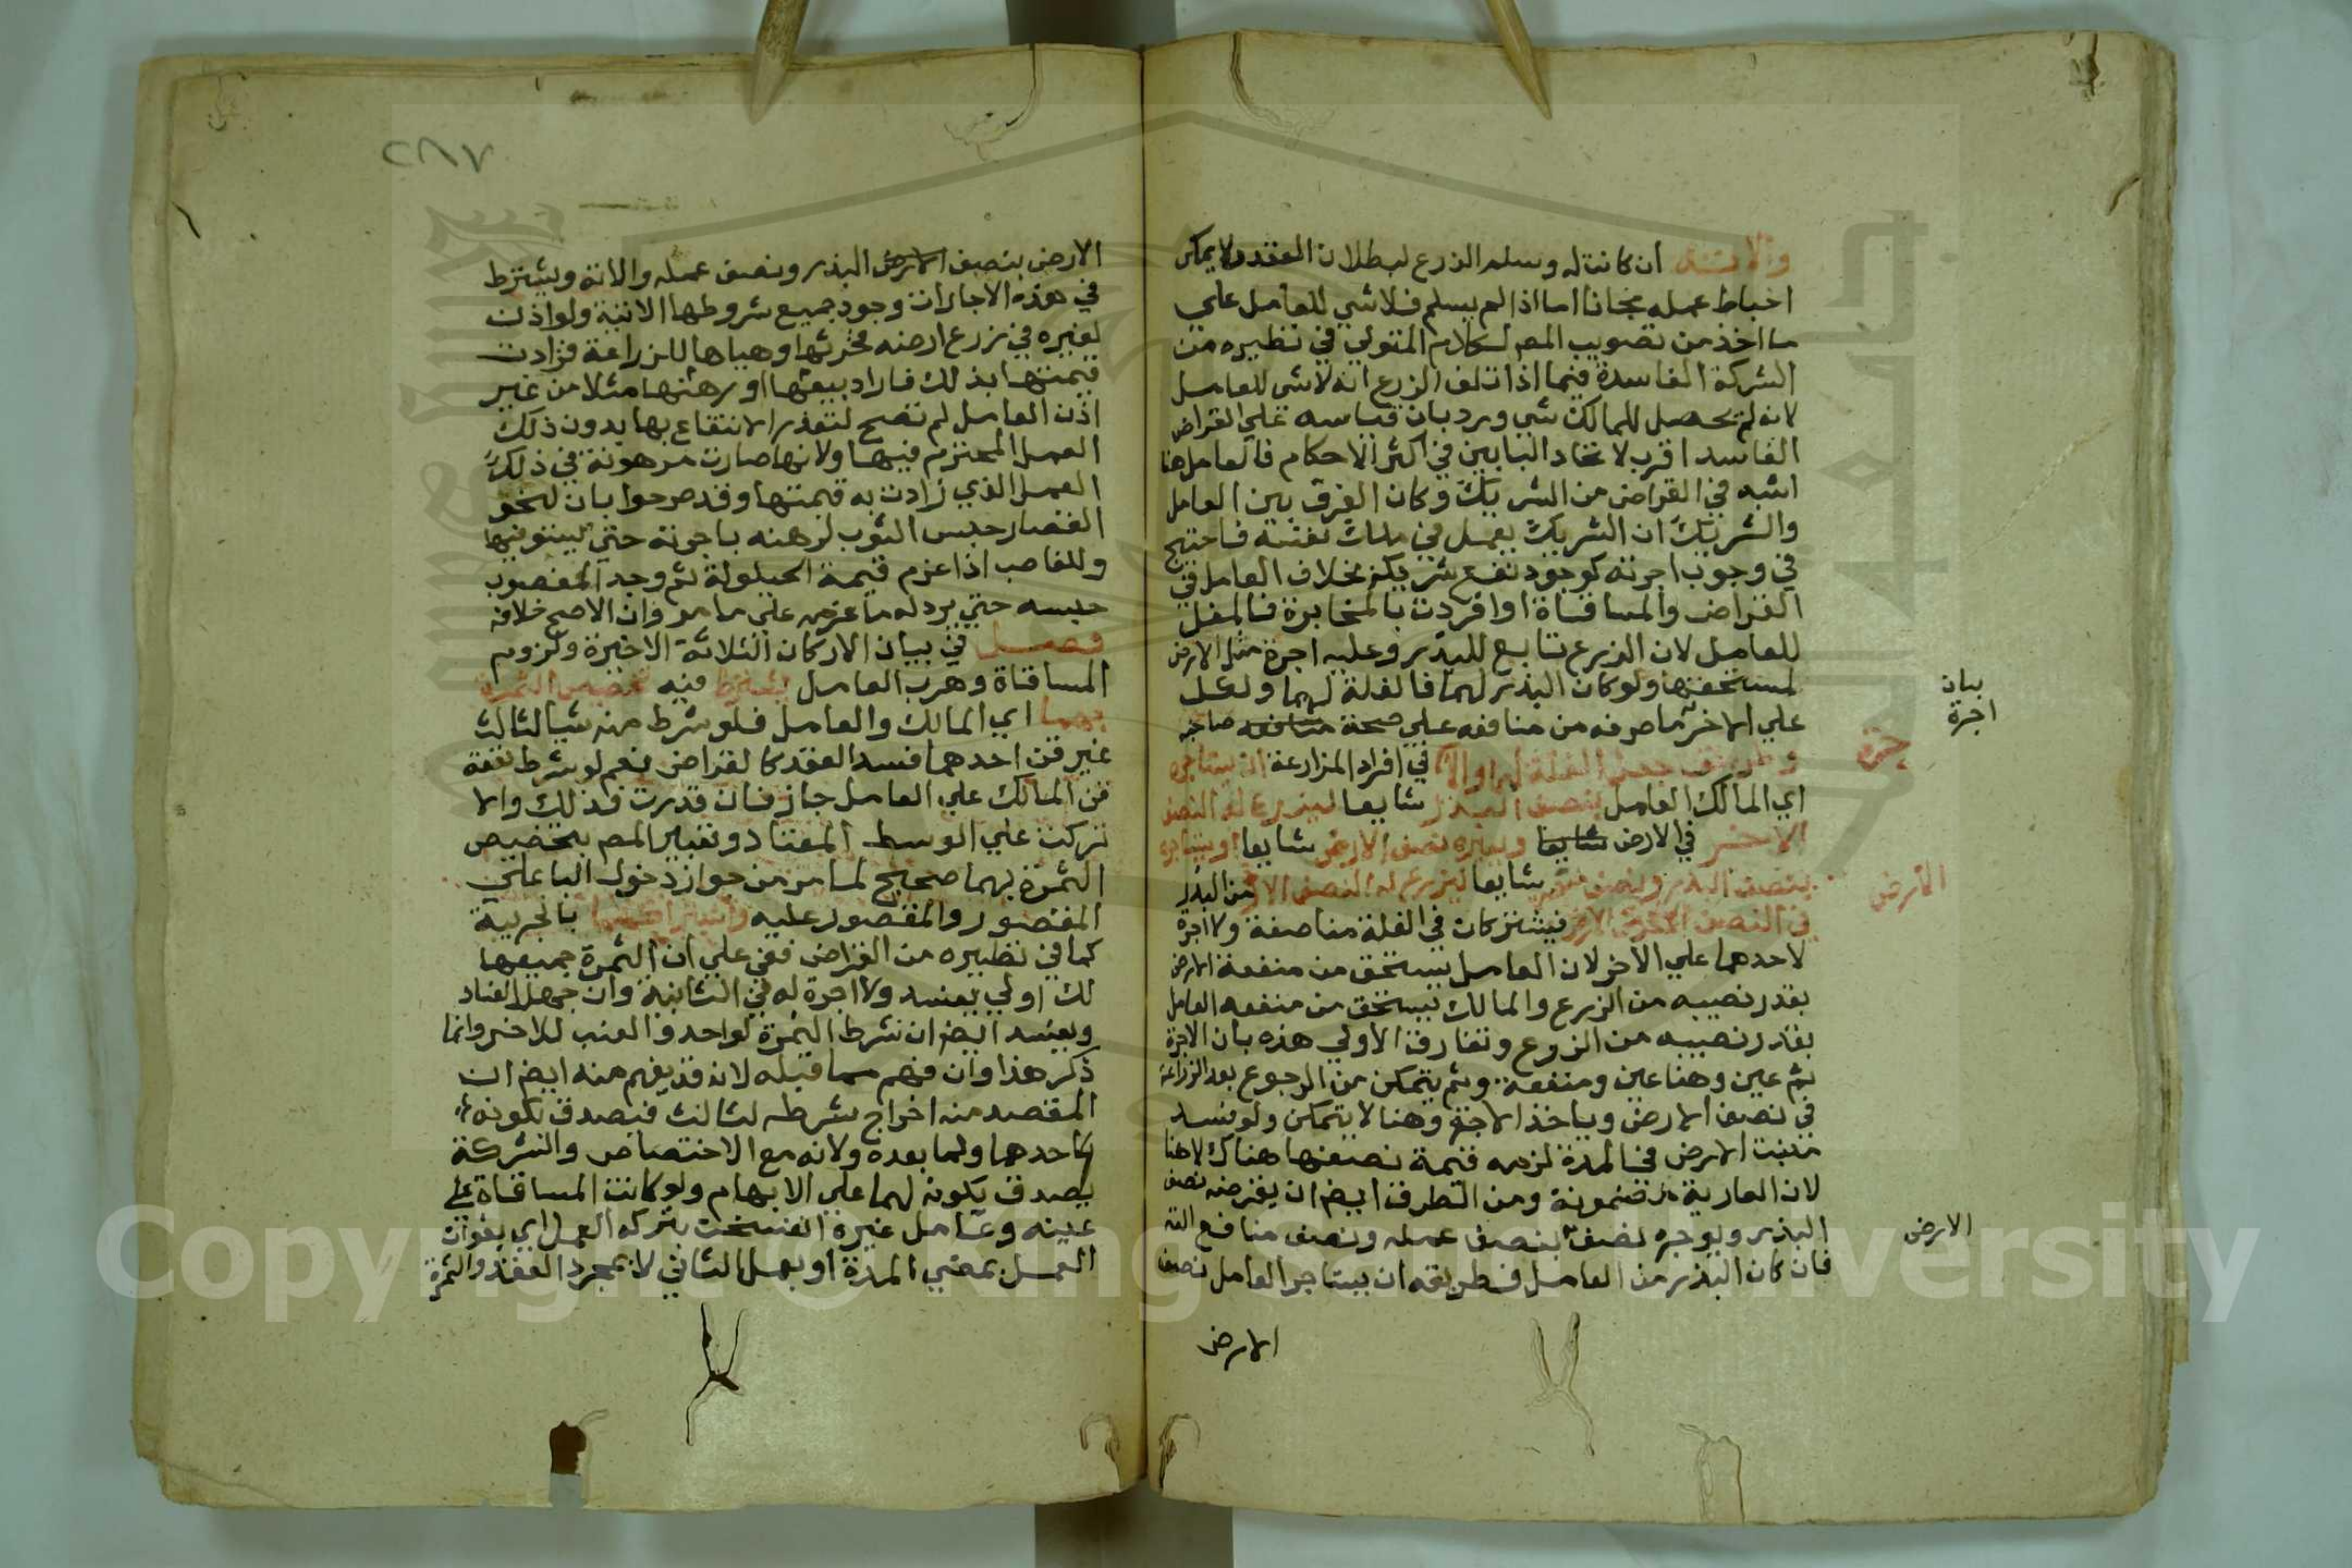 والالته ان كانت له وسلم الزرع لبطلان العقد ولا يمكن
احباط عمله مجانا اما اذا لم يسلم فلا شي للعامل علي
ما اخذ من تصويب المص لكلام المتولي في نظيره من
الشركة الفاسدة فيما اذا تلف الزرع انه لا شي للعامل
لانه لم يحصل للمالك شي ورد بان قياسه علي القراض
الفاسد اقرب لاتحاد البابين في اكثر الاحكام فالعامل هنا
اشبه في القراض من الشريك وكان الفرق بين العامل
والشريك ان الشريك يعمل في ملك نفسه فاحتيج
في وجوب اجرته لوجود نفع شريكه بخلاف العامل في
القراض والمساقاة او افردت بالمخابرة فالمغل
للعامل لان الزرع تابع للبذر وعليه اجرة مثل الارض
لمستحقها ولو كان البذر لهما فالغلة لهما ولكل
علي الاخر ما صرفه من منافعه علي حصة صاحبه
بيان
اجرة
وطريق جعل الغلة لهما ولا اجرة في افراد المزارعة ان يستاجره
اي المالك العامل بنصف البذر شايعا ليزرع له النصف
الاخر في الارض شايعا ويعيره نصف الارض شايعا او يستاجره
بنصف البذر ونصف منفعة الارض شايعا ليزرع له النصف الاخر من البذر
في النصف الاخر من الارض فيشتركان في الغلة مناصفة ولا اجرة
لاحدهما علي الاخر لان العامل يستحق من منفعة الارض
بقدر نصيبه من الزرع والمالك يستحق من منفعه العامل
بقدر نصيبه من الزرع وتفارق الاولي هذه بان الاجرة
ثم عين وهنا عين ومنفعة وثم يتمكن من الرجوع بعد الزراعة
في نصف الارض وياخذ الاجرة وهنا لا يتمكن ولو فسد
منبت الارض في المدة لزمه قيمة نصفها هناك لا هنا
لان العارية مضمونة ومن الطرق ايضا ان يقرضه نصف
البذر ويوجره نصف الارض بنصف عمله ونصف منافع الته
فان كان البذر من العامل فطريقه ان يستاجر العامل نصف
الارض
٢٨٧
الارض بنصف الارض البذر ونصف عمله والاته ويشترط
في هذه الاجارات وجود جميع شروطها الاتية ولو اذن
لغيره في زرع ارضه فحرثها وهياها للزراعة فزادت
قيمتها بذلك فاراد بيعها او رهنها مثلا من غير
اذن العامل لم تصح لتعذر الانتفاع بها بدون ذلك
العمل المحترم فيها ولانها صارت مرهونة في ذلك
العمل الذي زادت به قيمتها وقد صرحوا بان لنحو
القصار حبس الثوب لرهنه باجرته حتي يستوفيها
وللغاصب اذا غرم قيمة الحيلولة ثم وجد المغصوب
حبسه حتي يرد له ما غرمه علي ما مر وان الاصح خلافه
فصل في بيان الاركان الثلاثة الاخيرة ولزوم
المساقاة وهرب العامل يشترط فيه تخصيص الثمرة
بهما اي المالك والعامل فلو شرط منه شيا لثالث
غير قن احدهما فسد العقد كالقراض نعم لو شرط نفقة
قن المالك علي العامل جاز فان قدرت فذلك والا
نزلت علي الوسط المعتاد وتعبير المص بتخصيص
الثمرة بهما صحيح لما مر من جواز دخول البا علي
المقصور والمقصور عليه واشتراكهما بالجزيية
كما في نظيره من القراض ففي علي ان الثمرة جميعها
لك او لي يفسد ولا اجرة له في الثانية وان جهل الفساد
ويفسد ايضا ان شرط الثمرة لواحد والعنب للاخر وانما
ذكر هذا وان فهم مما قبله لانه قد يفهم منه ايضا ان
المقصد منه اخراج شرطه لثالث فيصدق بكونه
لاحدهما ولما بعده ولانه مع الاختصاص والشركة
يصدق بكونه لهما علي الابهام ولو كانت المساقاة علي
عينه وعامل غيره انفسخت بتركه العمل اي بفوات
العمل بمضي المدة او بعمل الثاني لا بمجرد العقد والثمرة
Copyright © King Saud University